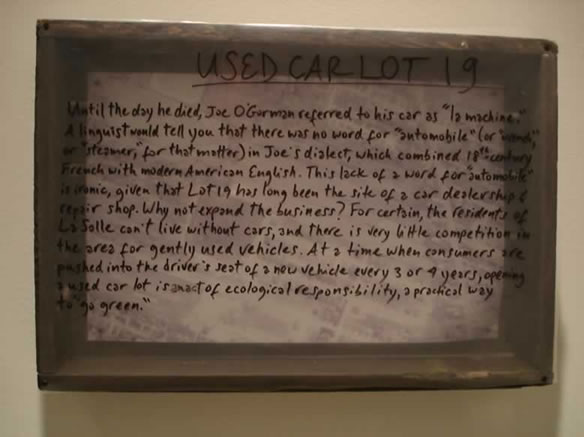 USED CAR LOT 19
Until the day he died, Joe O'Gorman referred to his car as "la machine."
A linguist would tell you that there was no word for "automobile" (or
or "steamer," for that matter) in Joe's dialect, which combined 18th-century
French with modern American English. This lack of a word for "automobile"
is ironic, given that Lot 19 has long been the site of a car dealership &
repair shop. Why not expand the business? For certain, the residents of
La Salle can't live without cars, and there is very little competition in
the area for gently used vehicles. At a time when consumers are
pushed into the driver's seat of a new vehicle every 3 or 4 years, opening
a used car lot is an act of ecological responsibility, a practical way
to "go green."